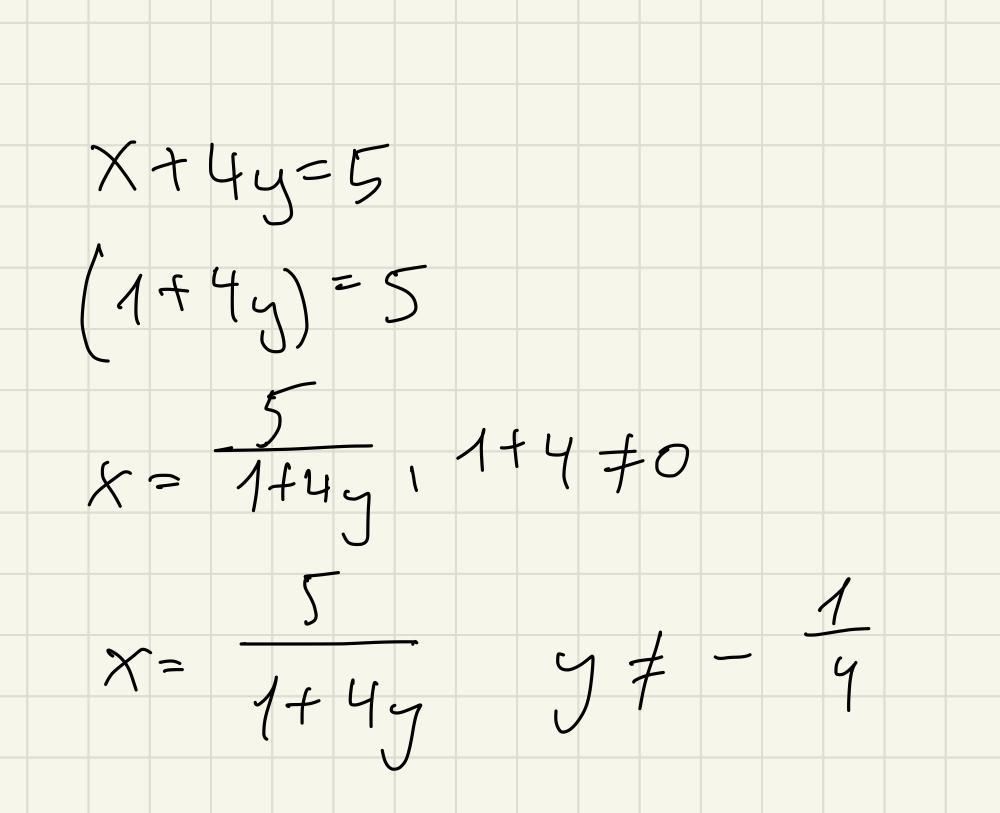 x+4y=5
(1+4y)=5
x = 5/(1+4y), 1+4≠0
x = 5/(1+4y) y ≠ - 1/4